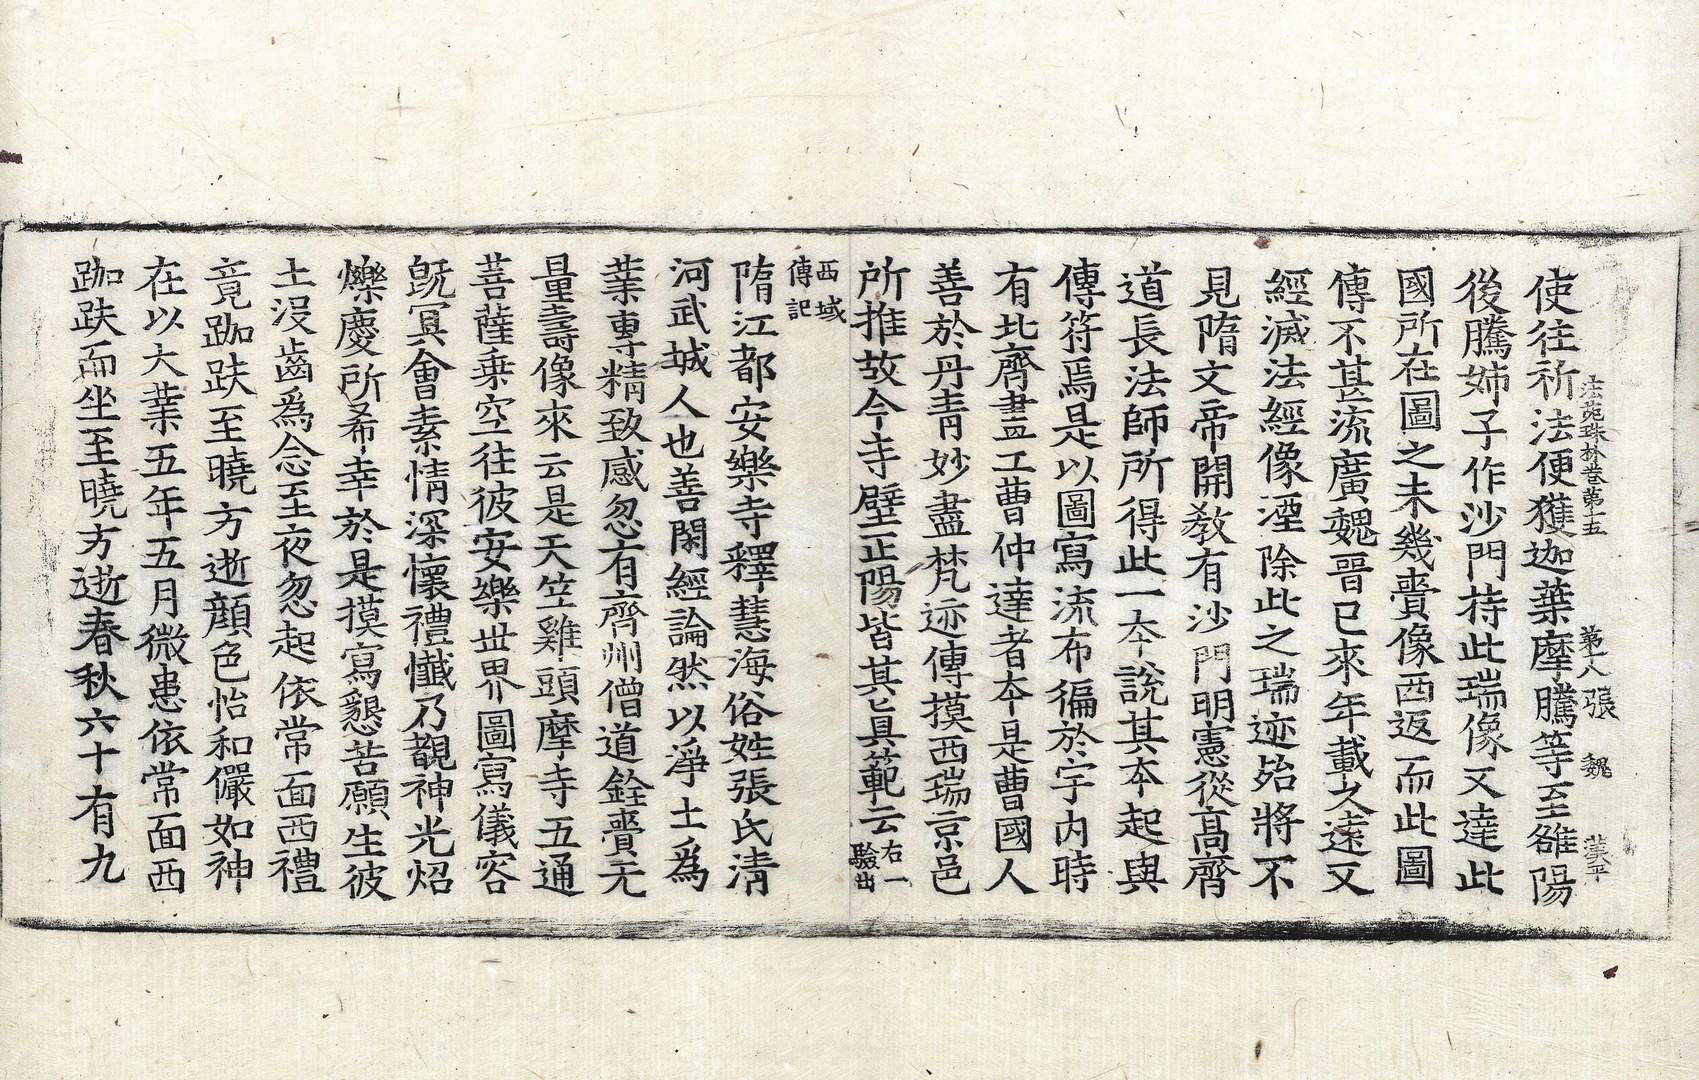 法苑珠林卷第十五 第八張 魏 漢平
使往祈法便獲迦葉摩騰等至雒陽
後騰姊子作沙門持此瑞像又達此
國所在圖之未幾賷像西返而此圖
傳不甚流廣魏晉已來年載久遠又
經滅法經像湮除此之瑞迹殆將不
見隋文帝開敎有沙門明憲從高齊
道長法師所得此一本說其本起與
傳符焉是以圖寫流布徧於宇內時
有北齊畫工曹仲達者本是曹國人
善於丹青妙盡梵迹傳摸西瑞京邑
所推故今寺壁正陽皆其眞範云右一驗出
西域傳記
隋江都安樂寺釋慧海俗姓張氏清
河武城人也善閑經論然以淨土爲
業專精致感忽有齊州僧道銓賷无
量壽像來云是天竺雞頭摩寺五通
菩薩乗空往彼安樂世界圖寫儀容
旣冥會素情深懷禮懺乃覩神光炤
爍慶所希幸於是摸寫懇苦願生彼
土沒齒爲念至夜忽起依常面西禮
竟跏趺至曉方逝顔色怡和儼如神
在以大業五年五月微患依常面西
跏趺而坐至曉方逝春秋六十有九